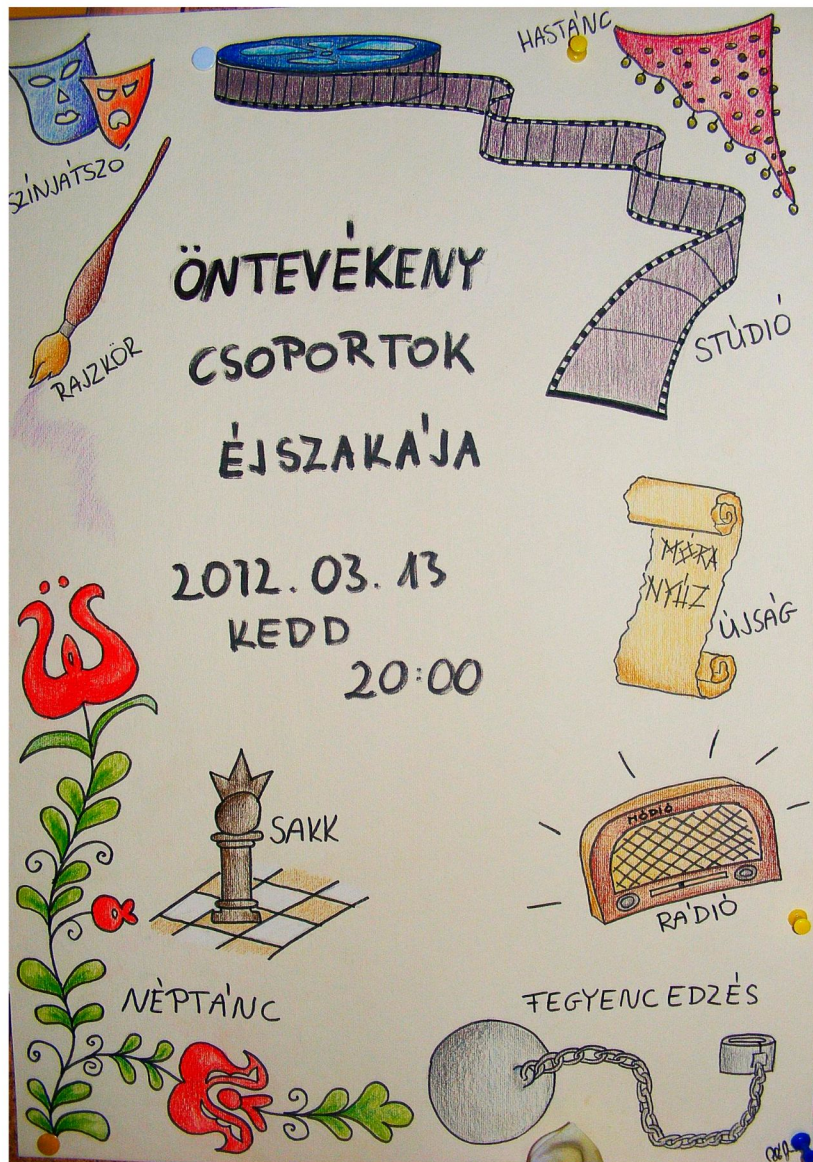 HASTÁNC
SZÍNJÁTSZÓ
RAJZKÖR
STÚDIÓ
ÖNTEVÉKENY
CSOPORTOK
ÉJSZAKÁJA
2012.03.13
KEDD
20:00
MÓRA
NYÚZ
ÚJSÁG
SAKK
MÓDIÓ
RÁDIÓ
NÉPTÁNC
FEGYENCEDZÉS